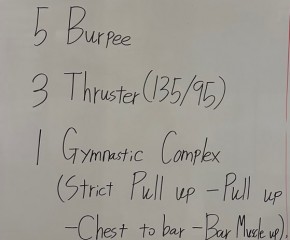 5 Burpee
3 Thruster (135/95)
1 Gymnastic Complex
(Strict Pull up - Pull up
- Chest to bar - Bar Muscle up).